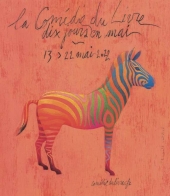 la Comédie du Livre
dix jours en mai
13 > 22 mai